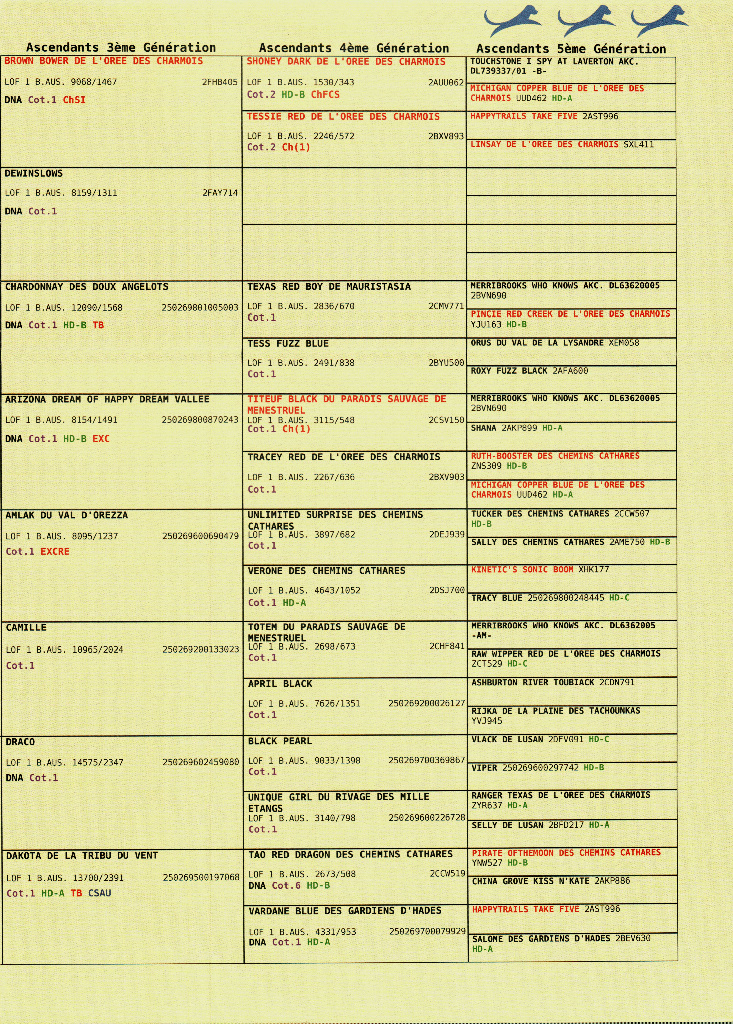 Ascendants 3ème Génération
Ascendants 4ème Génération
Ascendants 5ème Génération
BROWN BOWER DE L'OREE DES CHARMOIS
LOF 1 B.AUS. 9068/1467 2FHB405
DNA Cot.1 ChSI
DEWINSLOWS
LOF 1 B.AUS. 8159/1311 2FAY714
DNA Cot.1
CHARDONNAY DES DOUX ANGELOTS
LOF 1 B.AUS. 12090/1568 250269801005003
DNA Cot.1 HD-B TB
ARIZONA DREAM OF HAPPY DREAM VALLEE
LOF 1 B.AUS. 8154/1491 250269800870243
DNA Cot.1 HD-B EXC
AMLAK DU VAL D'OREZZA
LOF 1 B.AUS. 8095/1237 250269600690479
Cot.1 EXCRE
CAMILLE
LOF 1 B.AUS. 10965/2024 250269200133023
Cot.1
DRACO
LOF 1 B.AUS. 14575/2347 250269602459080
DNA Cot.1
DAKOTA DE LA TRIBU DU VENT
LOF 1 B.AUS. 13700/2391 250269500197068
Cot.1 HD-A TB CSAU
SHONEY DARK DE L'OREE DES CHARMOIS
LOF 1 B.AUS. 1530/343 2AUU062
Cot.2 HD-B ChFCS
TESSIE RED DE L'OREE DES CHARMOIS
LOF 1 B.AUS. 2246/572 2BXV893
Cot.2 Ch(1)
TEXAS RED BOY DE MAURISTASIA
LOF 1 B.AUS. 2836/670 2CMV771
Cot.1
TESS FUZZ BLUE
LOF 1 B.AUS. 2491/838 2BYU500
Cot.1
TITEUF BLACK DU PARADIS SAUVAGE DE
MENESTRUEL
LOF 1 B.AUS. 3115/548 2CSV150
Cot.1 Ch(1)
TRACEY RED DE L'OREE DES CHARMOIS
LOF 1 B.AUS. 2267/636 2BXV903
Cot.1
UNLIMITED SURPRISE DES CHEMINS
CATHARES
LOF 1 B.AUS. 3897/682 2DEJ939
Cot.1
VERONE DES CHEMINS CATHARES
LOF 1 B.AUS. 4643/1052 2DSJ700
Cot.1 HD-A
TOTEM DU PARADIS SAUVAGE DE
MENESTRUEL
LOF 1 B.AUS. 2698/673 2CHF841
Cot.1
APRIL BLACK
LOF 1 B.AUS. 7626/1351 250269200026127
Cot.1
BLACK PEARL
LOF 1 B.AUS. 9033/1390 250269700369867
Cot.1
UNIQUE GIRL DU RIVAGE DES MILLE
ETANGS
LOF 1 B.AUS. 3140/798 250269600226728
Cot.1
TAO RED DRAGON DES CHEMINS CATHARES
LOF 1 B.AUS. 2673/508 2CCW519
DNA Cot.6 HD-B
VARDANE BLUE DES GARDIENS D'HADES
LOF 1 B.AUS. 4331/953 250269700079929
DNA Cot.1 HD-A
TOUCHSTONE I SPY AT LAVERTON AKC.
DL739337/01 -B-
MICHIGAN COPPER BLUE DE L'OREE DES
CHARMOIS UUD462 HD-A
HAPPYTRAILS TAKE FIVE 2AST996
LINSAY DE L'OREE DES CHARMOIS SXL411
MERRIBROOKS WHO KNOWS AKC. DL63620005
2BVN690
PINCIE RED CREEK DE L'OREE DES CHARMOIS
YJU163 HD-B
ORUS DU VAL DE LA LYSANDRE XEM058
ROXY FUZZ BLACK 2AFA600
MERRIBROOKS WHO KNOWS AKC. DL63620005
2BVN690
SHANA 2AKP899 HD-A
RUTH-BOOSTER DES CHEMINS CATHARES
ZNS309 HD-B
MICHIGAN COPPER BLUE DE L'OREE DES
CHARMOIS UUD462 HD-A
TUCKER DES CHEMINS CATHARES 2CCW507
HD-B
SALLY DES CHEMINS CATHARES 2AME750 HD-B
KINETIC'S SONIC BOOM XHK177
TRACY BLUE 250269800248445 HD-C
MERRIBROOKS WHO KNOWS AKC. DL6362005
-AM-
RAW WIPPER RED DE L'OREE DES CHARMOIS
ZCT529 HD-C
ASHBURTON RIVER TOUBIACK 2CDN791
RIJKA DE LA PLAINE DES TACHOUNKAS
YVJ945
VLACK DE LUSAN 2DFV091 HD-C
VIPER 250269600297742 HD-B
RANGER TEXAS DE L'OREE DES CHARMOIS
ZYR637 HD-A
SELLY DE LUSAN 2BFD217 HD-A
PIRATE OFTHEMOON DES CHEMINS CATHARES
YNW527 HD-B
CHINA GROVE KISS N'KATE 2AKP886
HAPPYTRAILS TAKE FIVE 2AST996
SALOME DES GARDIENS D'HADES 2BEV630
HD-A